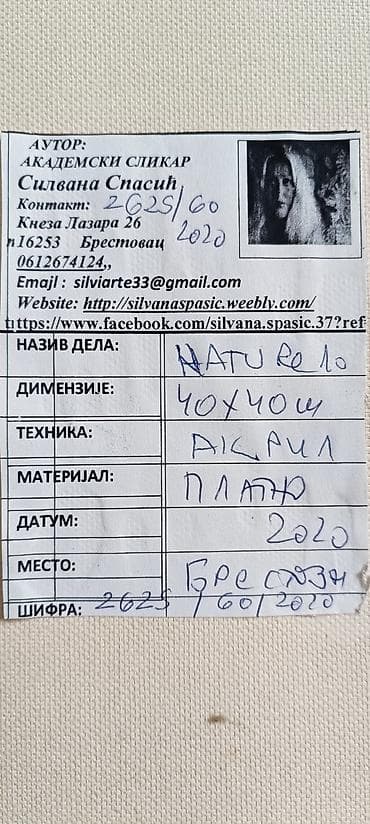 АУТОР:
АКАДЕМСКИ СЛИКАР
Силвана Спасић
Контакт: 2625/60
Кнеза Лазара 26
п16253 Брестовац 2020
0612674124,,
Emajl : silviarte33@gmail.com
Website: http://silvanaspasic.weebly.com/
ttps://www.facebook.com/silvana.spasic.37?ref
НАЗИВ ДЕЛА: NATURE 10
ДИМЕНЗИЈЕ: 40X40 ш
ТЕХНИКА: АКРИЛ
МАТЕРИЈАЛ: ПЛАТНО
ДАТУМ: 2020
МЕСТО:
ШИФРА: 2625/60/2020